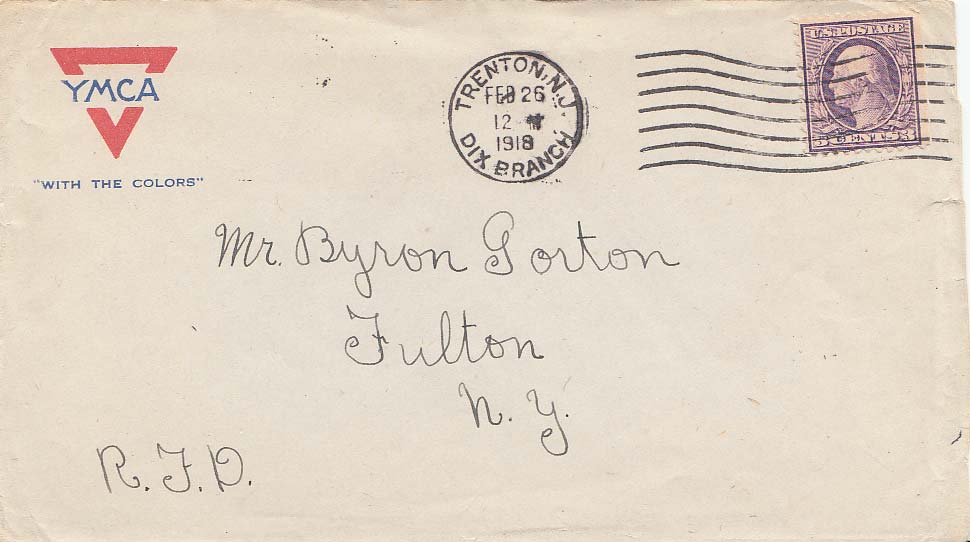 YMCA
"WITH THE COLORS"
TRENTON, N.J.
FEB 26
12 M
1918
DIX BRANCH
U.S. POSTAGE
3 CENTS 3
Mr. Byron Gorton
Fulton
N. Y.
R. F. D.